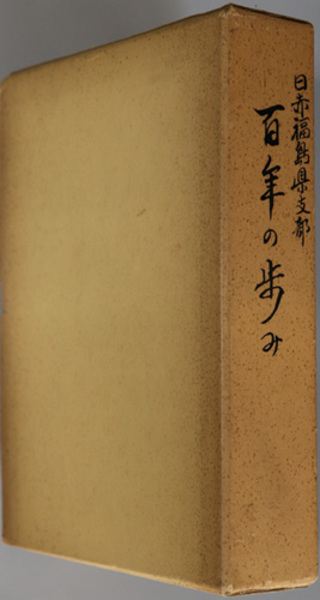 日赤福島県支部
百年の歩み